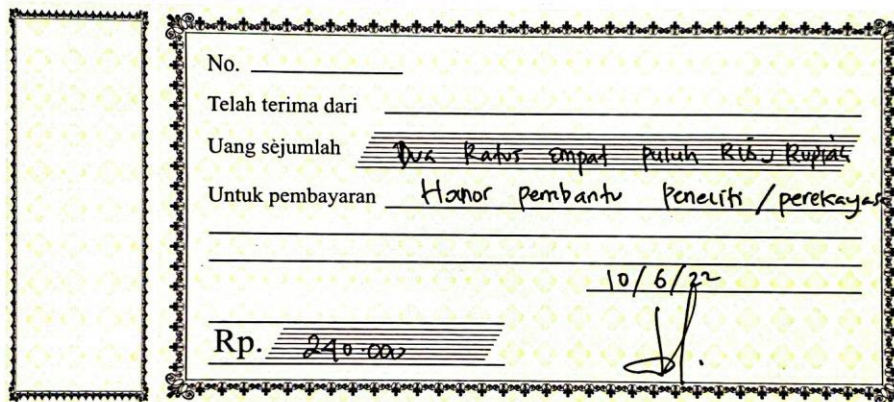 No.
Telah terima dari
Uang sejumlah Dua Ratus empat puluh Ribu Rupiah
Untuk pembayaran Honor pembantu Peneliti / perekayasa
10/6/22
Rp. 240.000